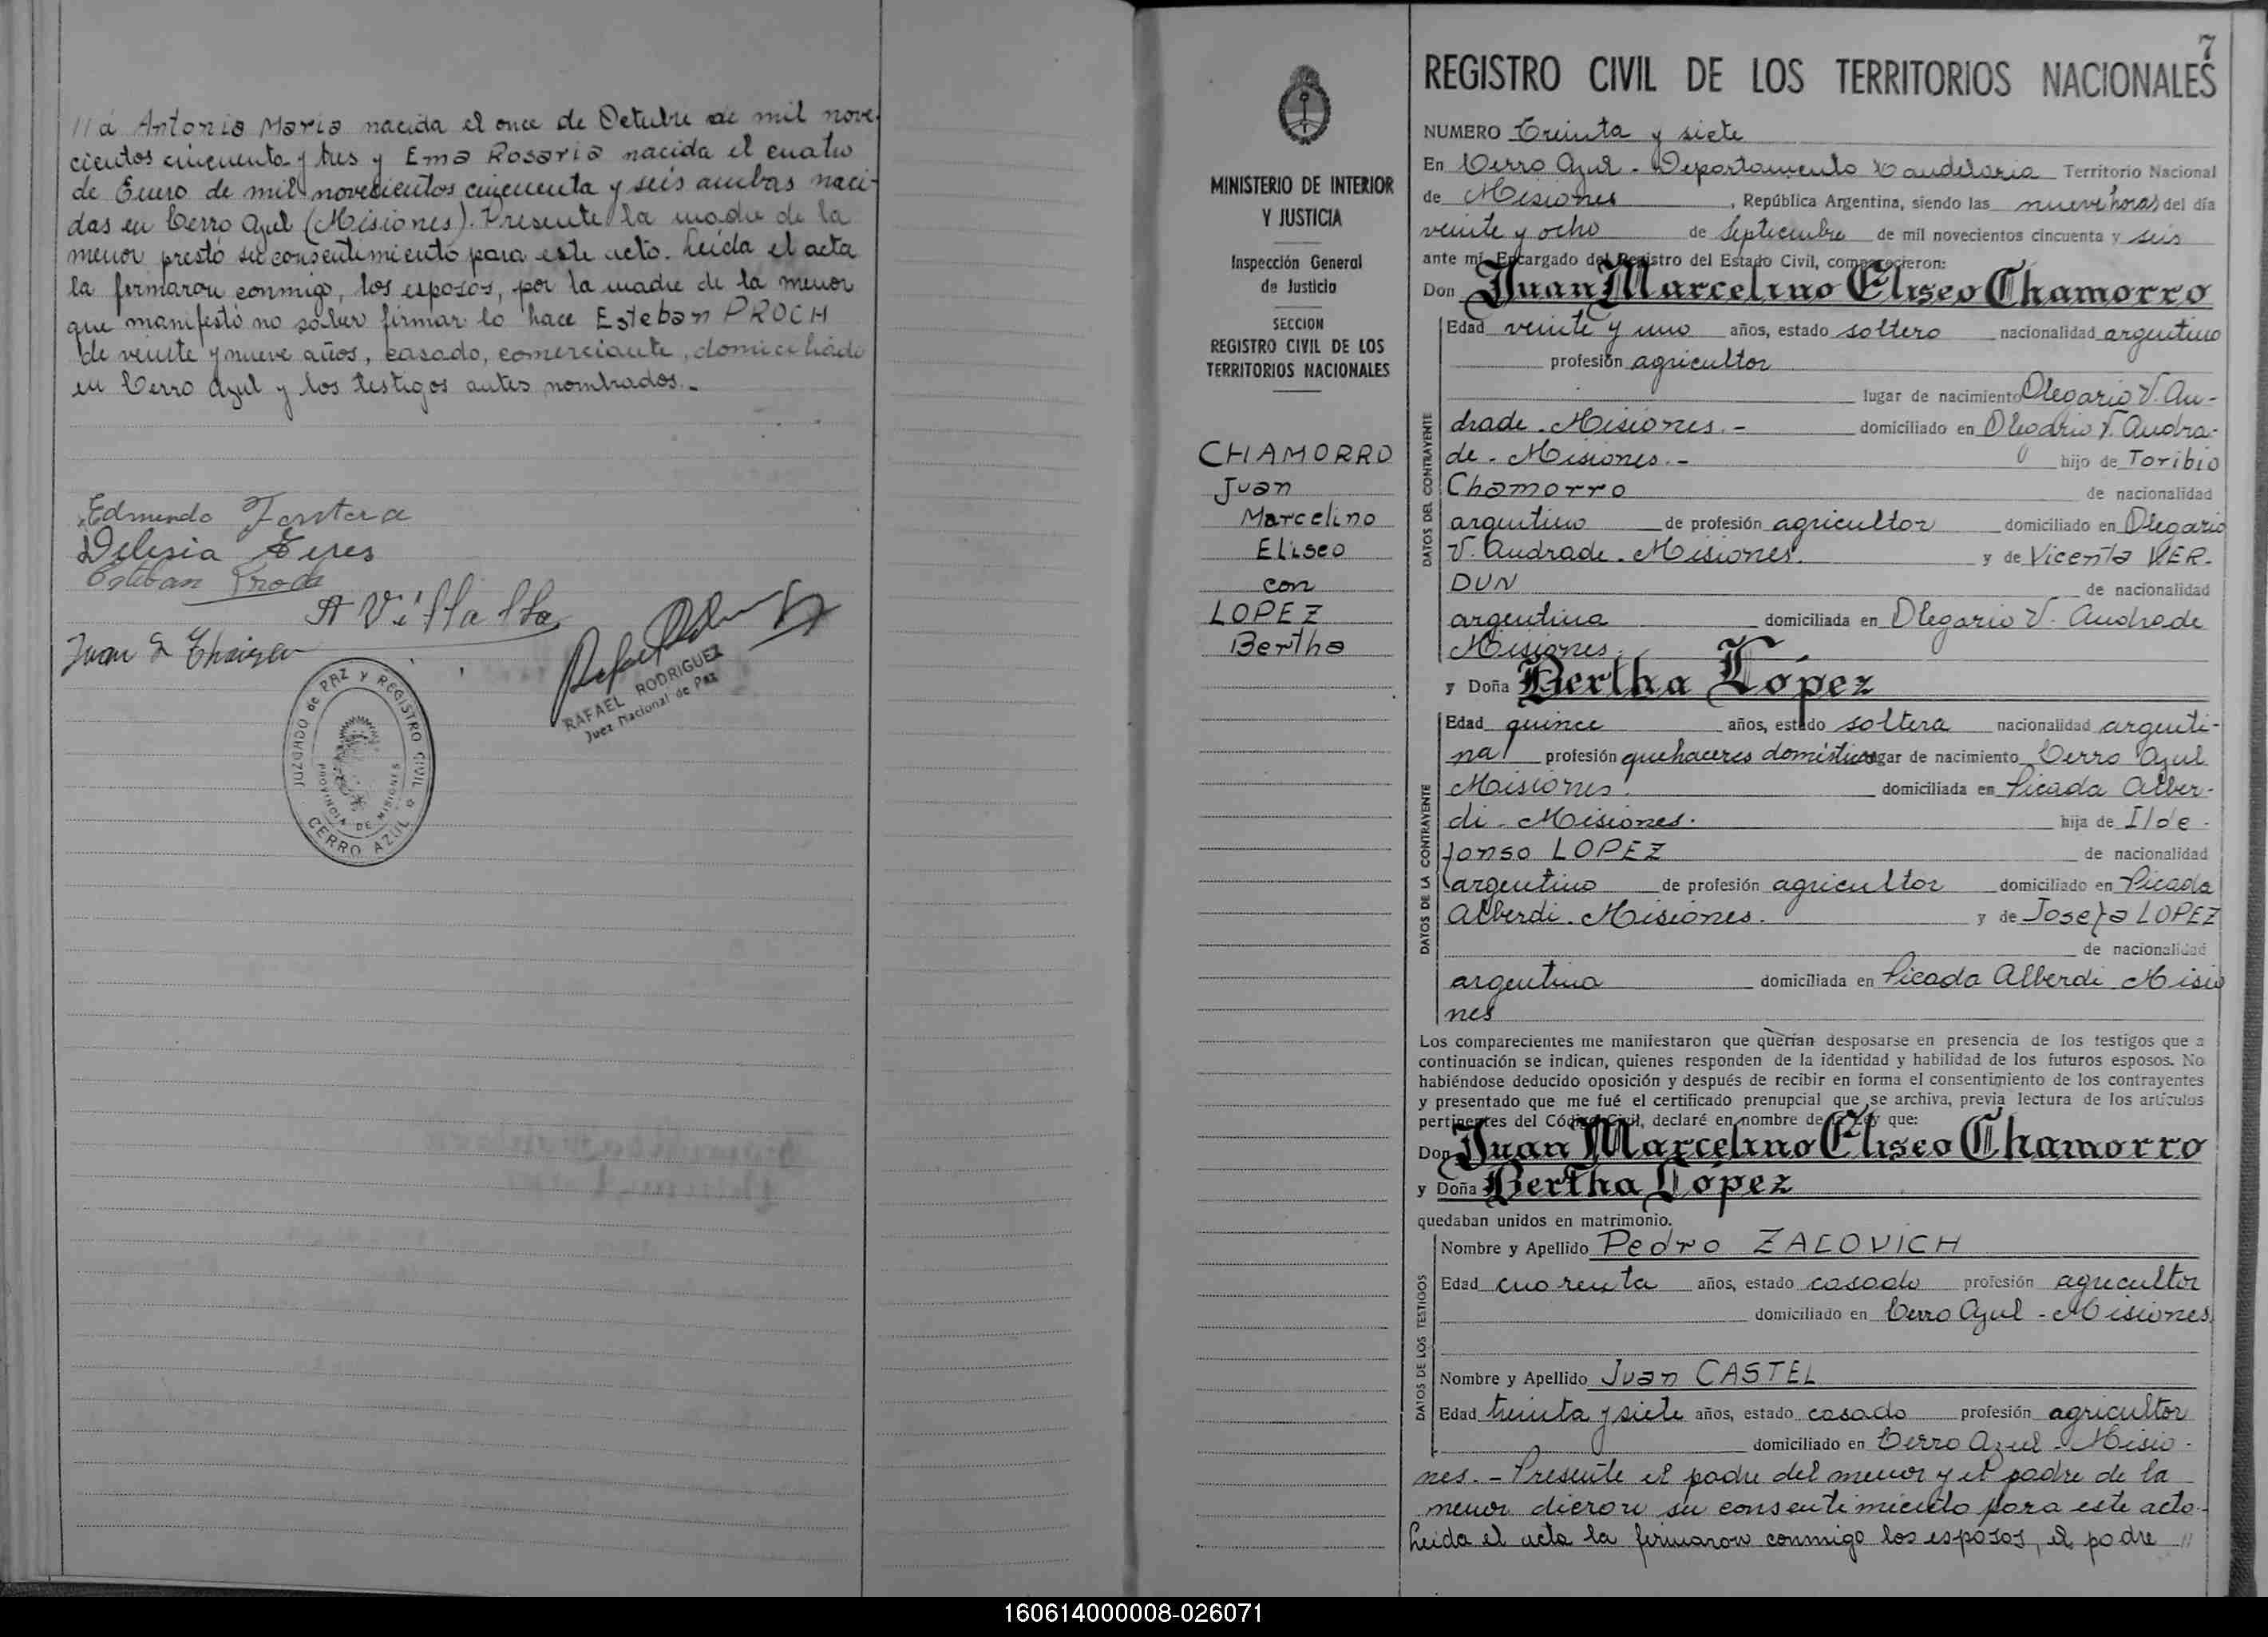 // á Antonia Maria nacida el once de Octubre de mil nove-
cientos cincuenta y tres y Ema Rosaria nacida el cuatro
de Enero de mil novecientos cincuenta y seis ambas naci-
das en Cerro Azul (Misiones). Presente la madre de la
menor prestó su consentimiento para este acto. Leída el acta
la firmaron conmigo, los esposos, por la madre de la menor
que manifestó no saber firmar lo hace Esteban PROCH
de veinte y nueve años, casado, comerciante, domiciliado
en Cerro Azul y los testigos antes nombrados.-
Edmundo
Esteban Proch
A Villalba
Juan
RAFAEL RODRIGUEZ
Juez Nacional de Paz
JUZGADO de PAZ y REGISTRO CIVIL
PROVINCIA DE MISIONES
CERRO AZUL
MINISTERIO DE INTERIOR
Y JUSTICIA
Inspección General
de Justicia
SECCION
REGISTRO CIVIL DE LOS
TERRITORIOS NACIONALES
CHAMORRO
Juan
Marcelino
Eliseo
con
LOPEZ
Bertha
7
REGISTRO CIVIL DE LOS TERRITORIOS NACIONALES
NUMERO Treinta y siete
En Cerro Azul - Departamento Candelaria Territorio Nacional
de Misiones, República Argentina, siendo las nueve horas del día
veinte y ocho de Septiembre de mil novecientos cincuenta y seis
ante mí, Encargado del Registro del Estado Civil, comparecieron:
Don Juan Marcelino Eliseo Chamorro
DATOS DEL CONTRAYENTE
Edad veinte y uno años, estado soltero nacionalidad argentino
profesión agricultor
lugar de nacimiento Olegario V. An-
drade - Misiones.- domiciliado en Olegario V. Andra-
de - Misiones.- hijo de Toribio
Chamorro de nacionalidad
argentino de profesión agricultor domiciliado en Olegario
V. Andrade - Misiones. y de Vicenta VER-
DUN de nacionalidad
argentina domiciliada en Olegario V. Andrade
Misiones.
y Doña Bertha López
DATOS DE LA CONTRAYENTE
Edad quince años, estado soltera nacionalidad argenti-
na profesión quehaceres domésticos lugar de nacimiento Cerro Azul
Misiones. domiciliada en Picada Alber-
di - Misiones. hija de Ilde-
fonso LOPEZ de nacionalidad
argentino de profesión agricultor domiciliado en Picada
Alberdi - Misiones. y de Josefa LOPEZ
de nacionalidad
argentina domiciliada en Picada Alberdi Misio
nes
Los comparecientes me manifestaron que querían desposarse en presencia de los testigos que a
continuación se indican, quienes responden de la identidad y habilidad de los futuros esposos. No
habiéndose deducido oposición y después de recibir en forma el consentimiento de los contrayentes
y presentado que me fué el certificado prenupcial que se archiva, previa lectura de los artículos
pertinentes del Código Civil, declaré en nombre de la Ley que:
Don Juan Marcelino Eliseo Chamorro
y Doña Bertha López
quedaban unidos en matrimonio.
DATOS DE LOS TESTIGOS
Nombre y Apellido Pedro ZACOVICH
Edad cuarenta años, estado casado profesión agricultor
domiciliado en Cerro Azul - Misiones
Nombre y Apellido Juan CASTEL
Edad treinta y siete años, estado casado profesión agricultor
domiciliado en Cerro Azul - Misio-
nes.- Presente el padre del menor y el padre de la
menor dieron su consentimiento para este acto.-
Leida el acta la firmaron conmigo los esposos, el padre //
160614000008-026071